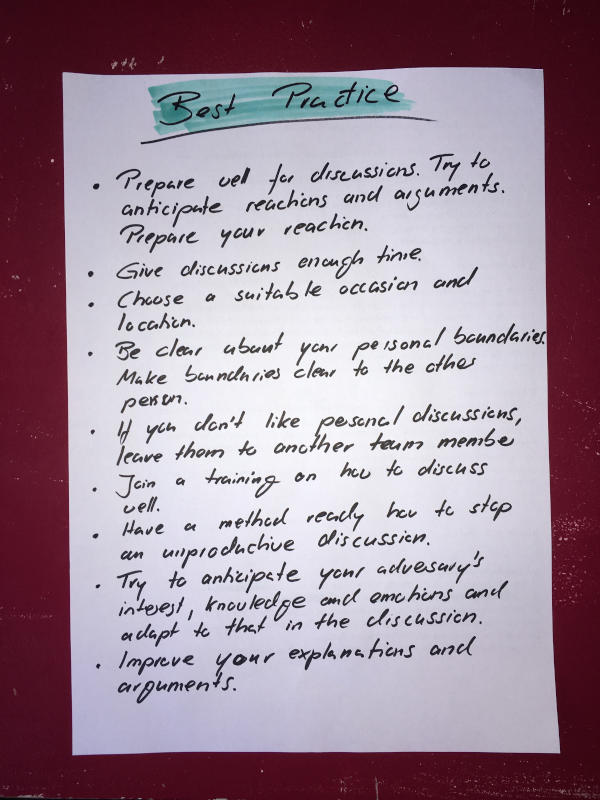 Best Practice
• Prepare well for discussions. Try to
anticipate reactions and arguments.
Prepare your reaction.
• Give discussions enough time.
• Choose a suitable occasion and
location.
• Be clear about your personal boundaries.
Make boundaries clear to the other
person.
• If you don't like personal discussions,
leave them to another team member
• Join a training on how to discuss
well.
• Have a method ready how to stop
an unproductive discussion.
• Try to anticipate your adversary's
interest, knowledge and emotions and
adapt to that in the discussion.
• Improve your explanations and
arguments.